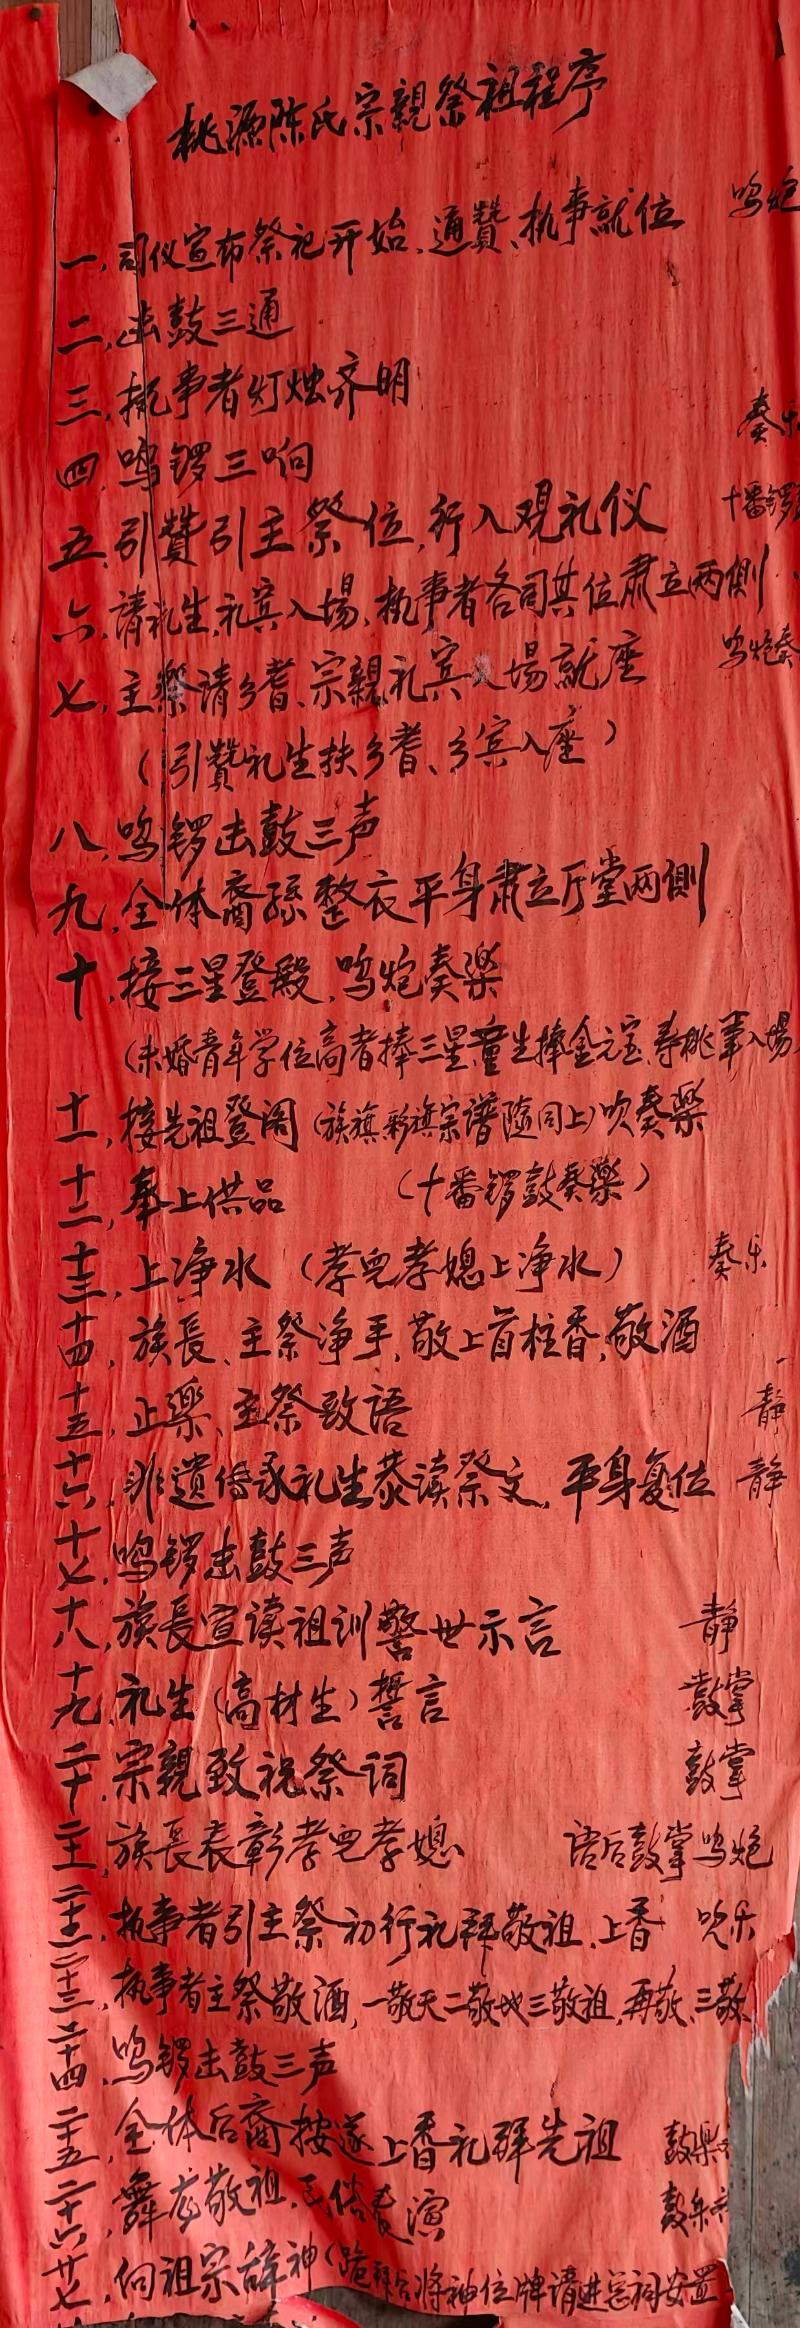 桃源陈氏宗親祭祖程序
一、司仪宣布祭祀开始、通贊、执事就位 鸣炮
二、击鼓三通
三、执事者灯烛齐明
四、鸣锣三响 奏乐
五、引贊引主祭位,行入观礼仪 十番锣
六、请礼生、礼宾入場、执事者各司其位肃立两側
七、主祭请乡耆、宗親礼宾入場就座 鸣炮奏
(引贊礼生扶乡耆、乡宾入座)
八、鸣锣击鼓三声
九、全体裔孫整衣平身肃立厅堂两側
十、接三星登殿、鸣炮奏樂
(未婚青年学位高者捧三星童生捧金元宝、寿桃菓入場
十一、接先祖登阁(族旗彩旗宗谱隨同上)吹奏樂
十二、奉上供品 (十番锣鼓奏樂)
十三、上净水(孝兒孝媳上净水) 奏乐
十四、族長、主祭净手、敬上首柱香、敬酒
十五、止樂、主祭致语 静
十六、非遗传承礼生恭读祭文、平身复位 静
十七、鸣锣击鼓三声
十八、族長宣读祖训警世示言 静
十九、礼生(高材生)誓言 鼓掌
二十、宗親致祝祭词 鼓掌
二十一、族長表彰孝兒孝媳 语后鼓掌鸣炮
二十二、执事者引主祭初行礼拜敬祖、上香 吹乐
二十三、执事者主祭敬酒,一敬天二敬地三敬祖,再敬、三敬
二十四、鸣锣击鼓三声
二十五、全体后裔按遂上香礼拜先祖 鼓樂
二十六、舞龙敬祖、民俗表演 鼓乐
廿七、向祖宗辞神(跪拜后将神位牌请进宗祠安置